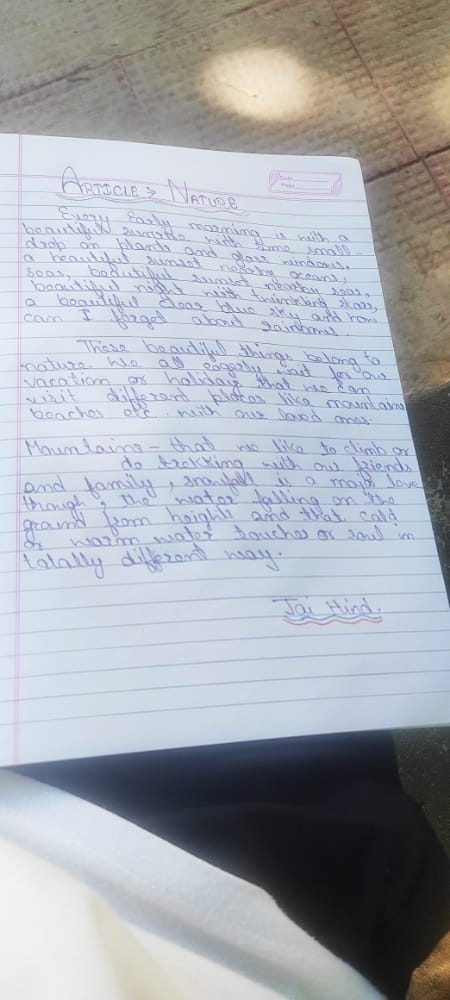 ARTICLE : NATURE
Date
Page
Every Early morning is with a
beautiful sunrise with some small-
drop on plants and glass windows,
a beautiful sunset nearby oceans,
seas, beautiful sunset nearby seas,
beautiful night with twinkling stars,
a beautiful clear blue sky and how
can I forget about rainbows.
These beautiful things belong to
nature. We all eagerly wait for our
vacation or holidays that we can
visit different places like mountains
beaches etc. with our loved ones.
Mountains - that we like to climb or
do trekking with our friends
and family, snowfall is a major love
though, the water falling on the
ground from heights and that cold
or warm water touches or soul in
totally different way.
Jai Hind.